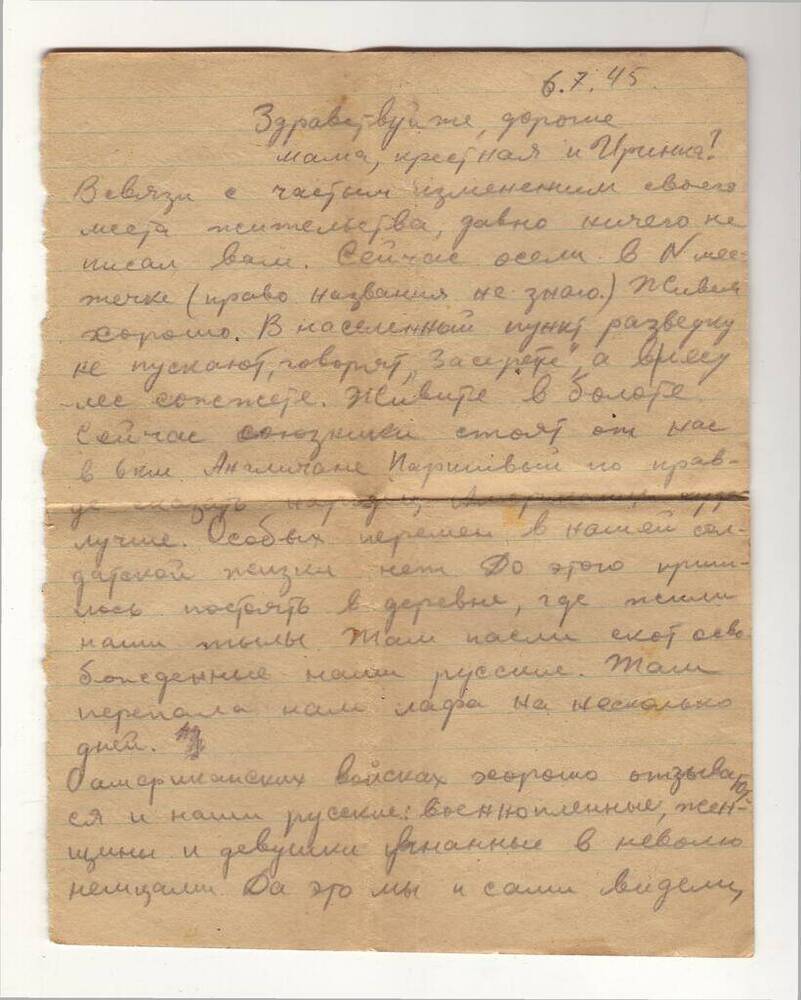 6.7.45.
Здравствуйте, дорогие
мама, крестная и Иринка!
В связи с частым изменением своего
места жительства, давно ничего не
писал вам. Сейчас осели в N мес-
течке (право названия не знаю.) Живем
хорошо. В населенный пункт разведку
не пускают, говорят, а в лесу
лес сожжете. Живите в болоте.
Сейчас союзники стоят от нас
в 6 км Англичане Паршивый по прав-
де сказать народец, Американцы
лучше. Особых перемен в нашей сол-
датской жизни нет До этого приш-
лось постоять в деревне, где жили
наши тылы Там пасли скот осво
божденные наши русские. Там
перепала нам лафа на несколько
дней.
О американских войсках хорошо отзывают
ся и наши русские: военнопленные, жен-
щины и девушки угнанные в неволю
немцами. Да это мы и сами видели,